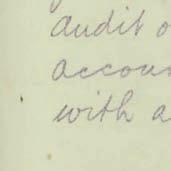 audit o
accoun
with a